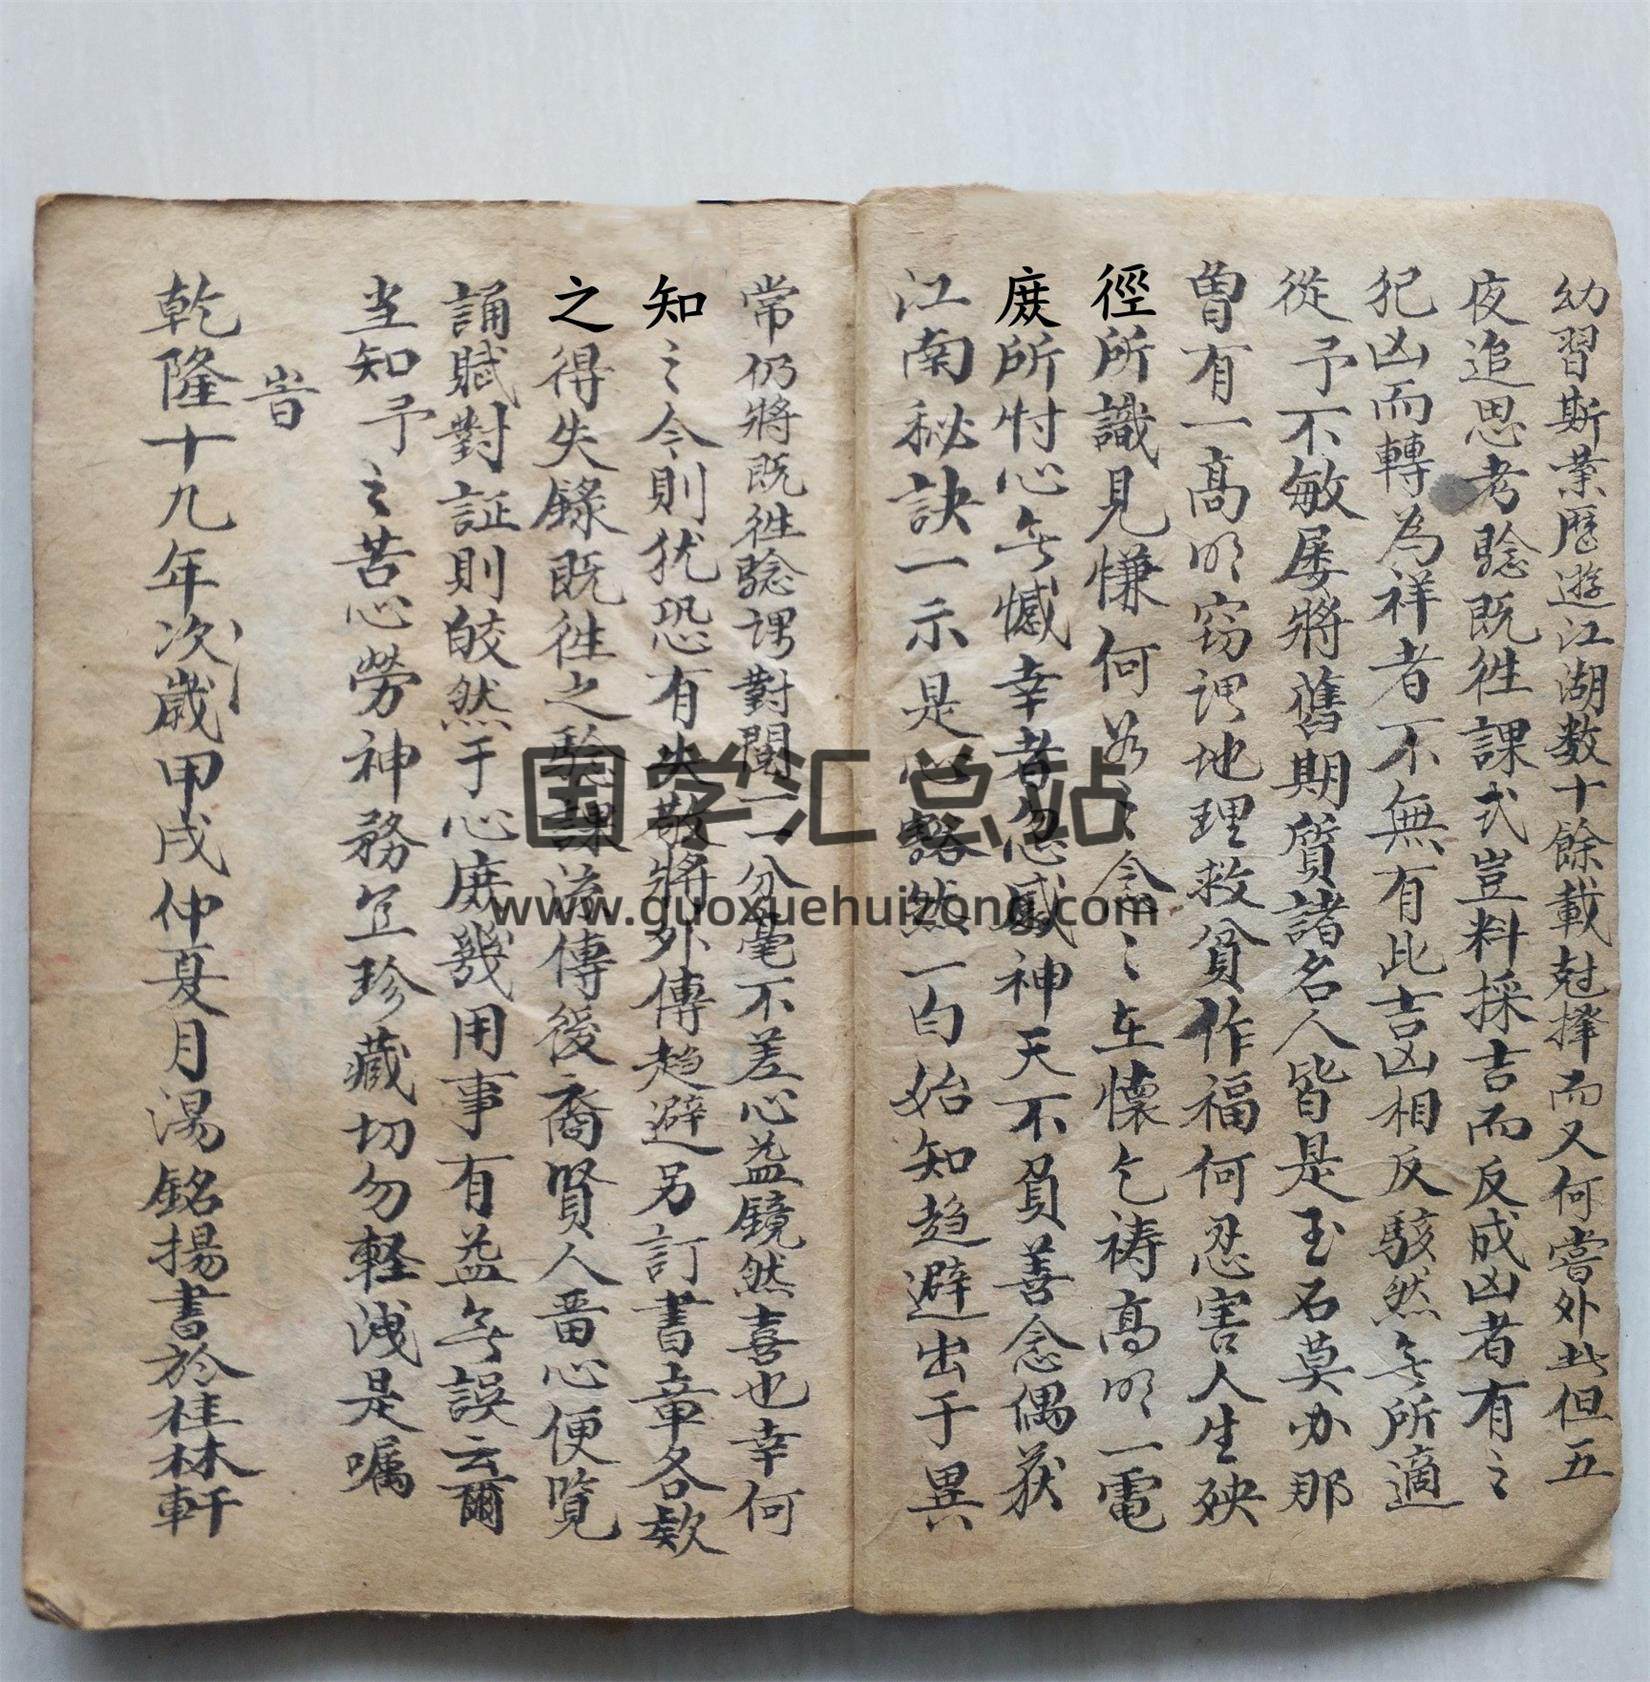 幼習斯業歷遊江湖数十餘載尅擇而又何嘗外此但五
夜追思考騐既徃課式豈料採吉而反成凶者有之
犯凶而轉為祥者不無有比吉凶相反駭然無所適
從予不敏屡將舊期質諸名人皆是玉石莫办那
曽有一髙明窃謂地理救貧作福何忍害人生殃
徑所識見慊何若〻念〻在懐乞祷髙明一電
庻所忖心無憾幸者忽感神天不負善念偶获
江南秘訣一示是心豁然一白始知趋避出于異
常仍將既徃騐課對閲一一分毫不差心益鏡然喜也幸何
知〻今則犹恐有失敬將外傳趋避另訂書章各欵
之得失錄既徃之騐課流傳後裔賢人畱心便覧
誦賦對証則皎然于心庻幾用事有益無誤云爾
当知予〻苦心勞神務宜珍藏切勿軽洩是嘱
旹
乾隆十九年次歲甲戌仲夏月湯銘揚書於桂林軒
国学汇总站
www.guoxuehuizong.com